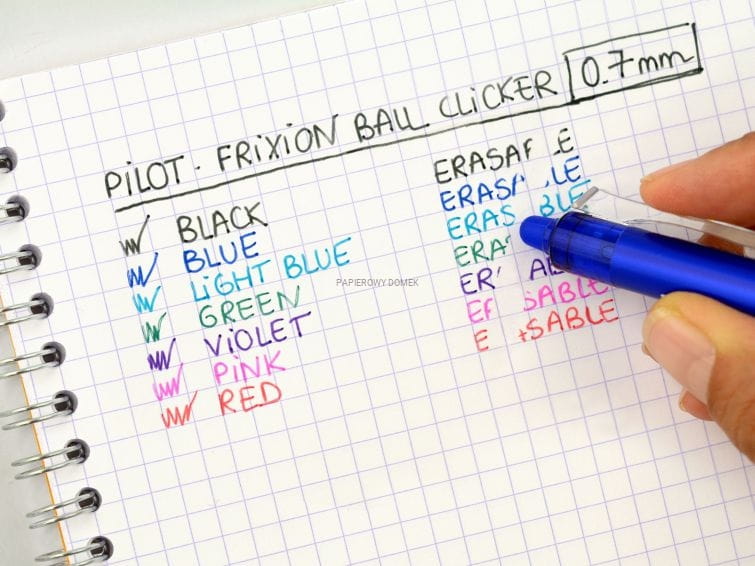 PILOT - FRIXION BALL CLICKER 0.7mm
BLACK
BLUE
LIGHT BLUE
GREEN
VIOLET
PINK
RED
ERASA E
ERAS LE
ERAS BLE
ERA
ER AB
E SABLE
E SABLE
PAPIEROWY.DOMEK